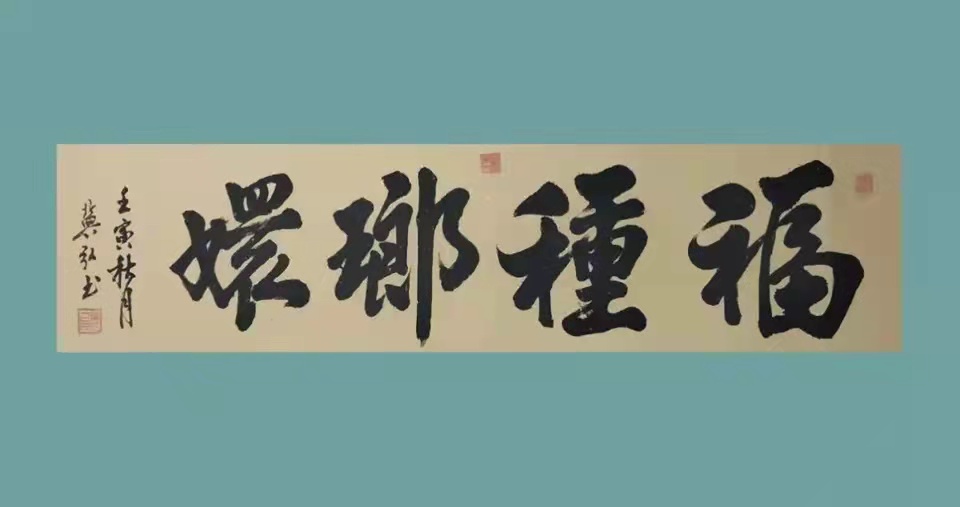 福種瑯嬛
壬寅秋月
冀弘书